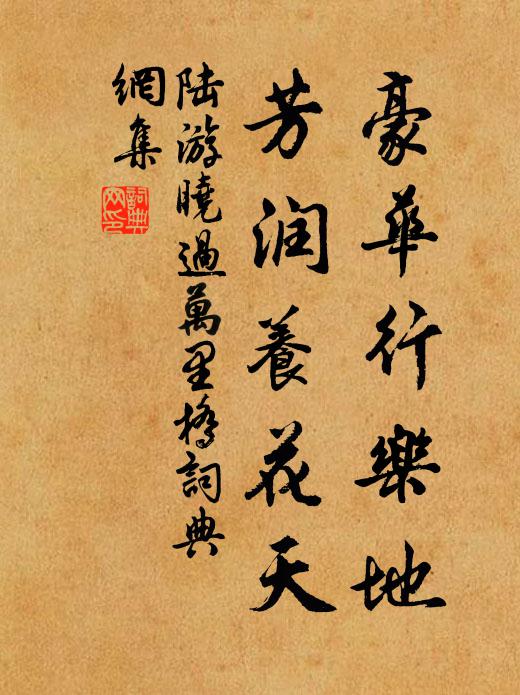 豪華行樂地
芳润養花天
陸游曉過萬里橋詞典
網集
詞典
网印